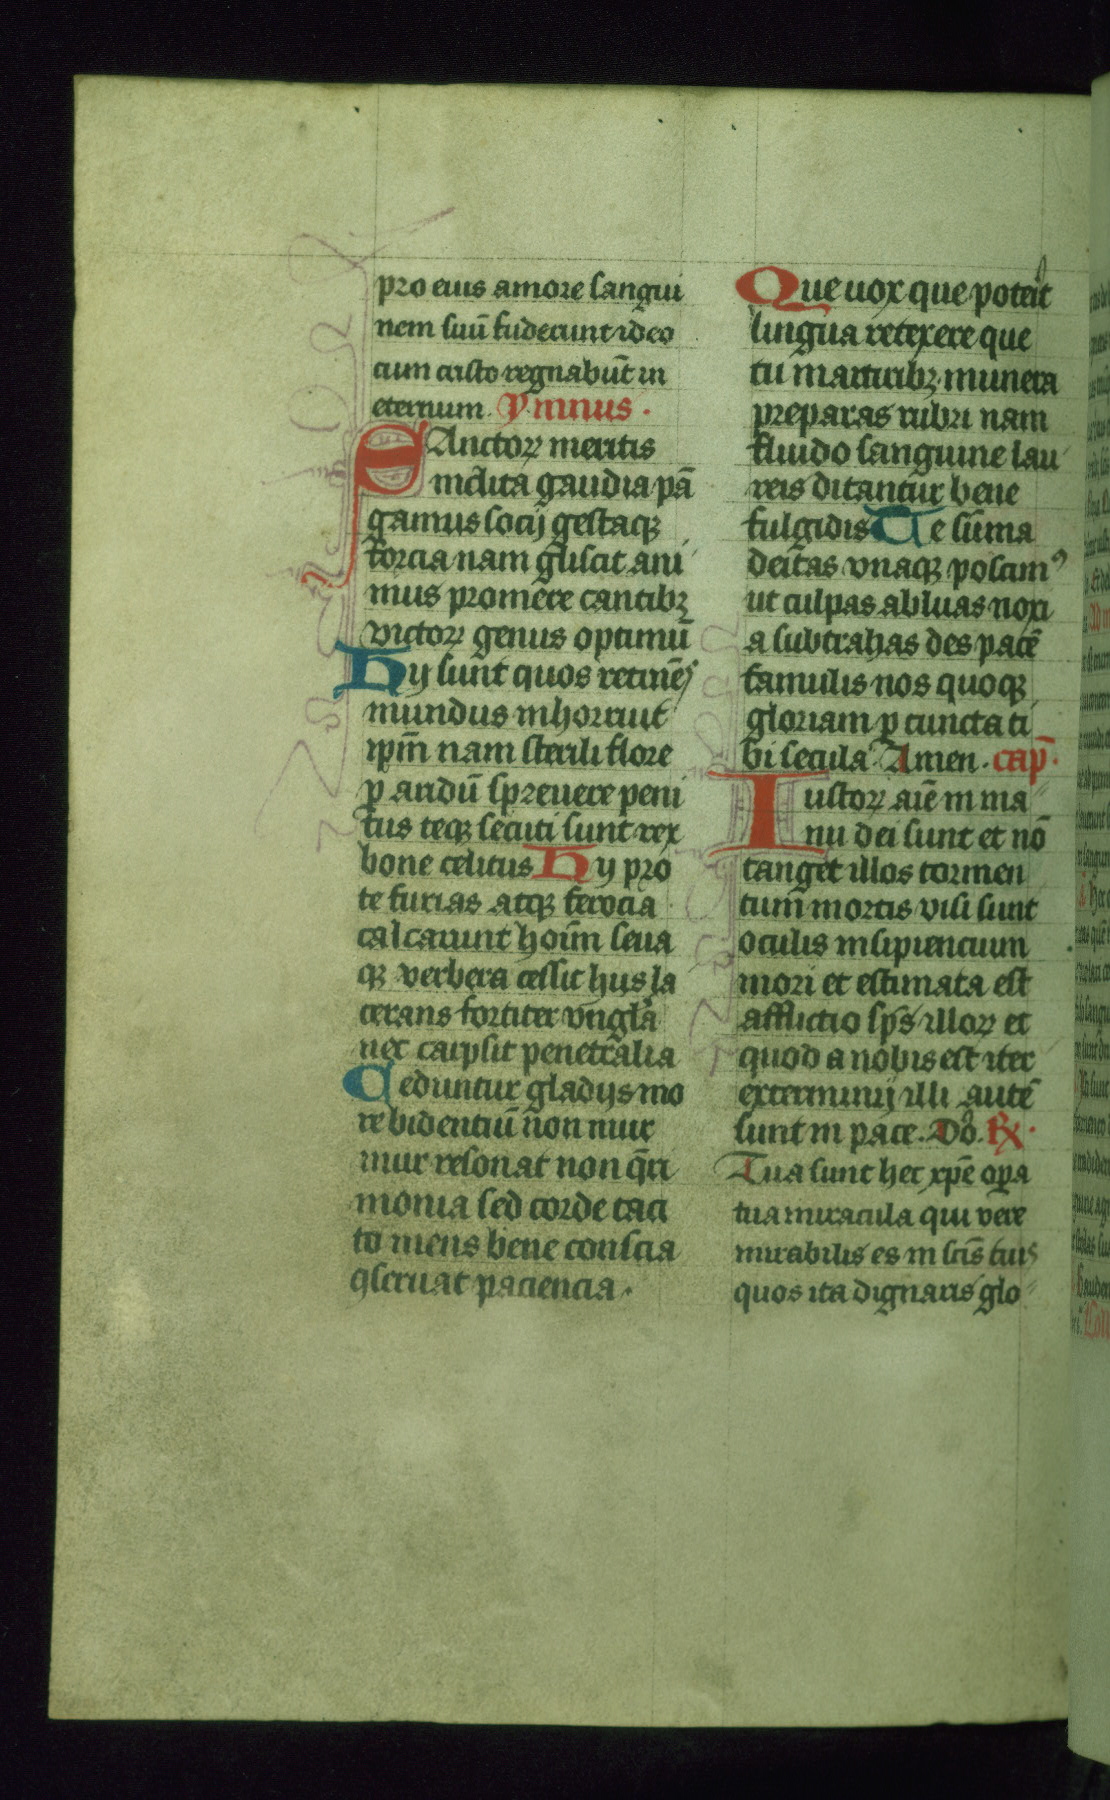 pro eius amore sangui
nem suū fuderunt ideo
cum cristo regnabūt in
eternum. Ymnus.
SAnctoꝝ meritis
inclita gaudia pā
gamus socij gestaqꝫ
forcia nam gliscit ani
mus promere cantibꝫ
victoꝝ genus optimū
Hij sunt quos retinēs
mundus inhorruit
ip̄m nam sterili flore
ꝑ aridū spreuere peni
tus teqꝫ secuti sunt rex
bone celitus Hij pro
te furias atqꝫ ferocia
calcarunt hoīm seua
qꝫ verbera cessit hijs la
cerans fortiter vngla
nec carpsit penetralia
Ceduntur gladijs mo
re bidentiū non mur
mur resonat non q̄ri
monia sed corde taci
to mens bene conscia
ꝯseruat paciencia.
Que uox que poterit
lingua retexere que
tu martiribꝫ munera
preparas rubri nam
fluido sanguine lau
reis ditantur bene
fulgidis Te sūma
deitas vnaqꝫ poscimꝰ
ut culpas abluas noxi
a subtrahas des pacē
famulis nos quoqꝫ
gloriam ꝑ cuncta ti
bi secula Amen. cap̄.
Iustoꝝ aīe in ma
nu dei sunt et nō
tanget illos tormen
tum mortis visi sunt
oculis insipiencium
mori et estimata est
afflictio sp̄s illoꝝ et
quod a nobis est iter
exterminij illi autē
sunt in pace. Dō. Rx.
Tua sunt hec xp̄e oꝑa
tua miracula qui vere
mirabilis es in scīs tuis
quos ita dignaris glo